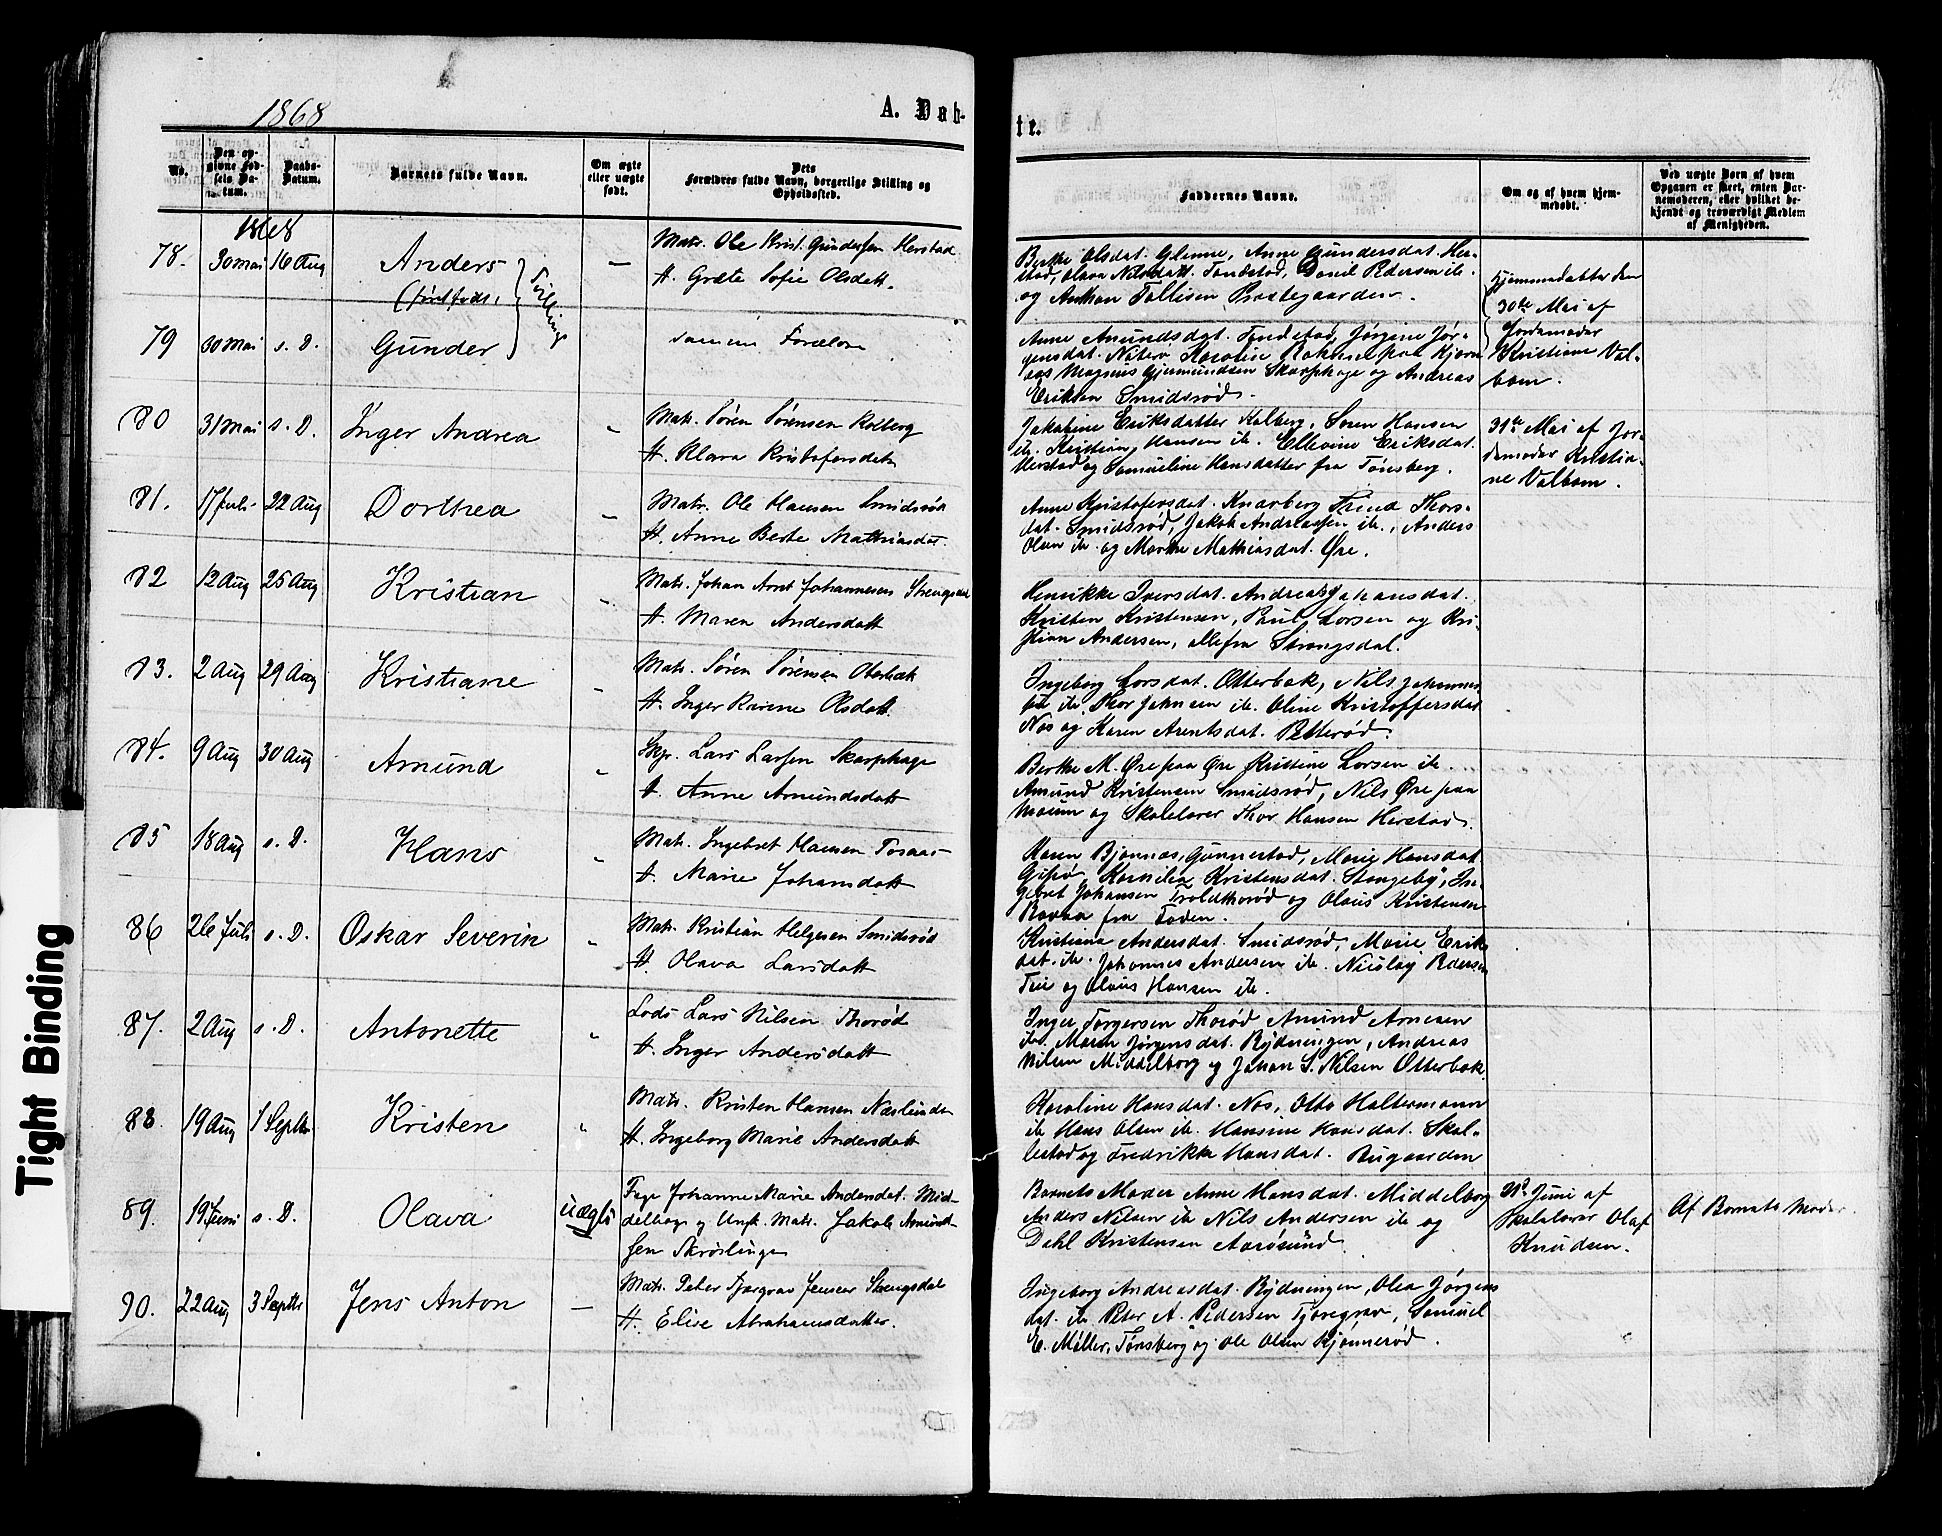 1868
A. Dåb-
te.
No.
Den op-
givne Fød-
sels Da-
tum.
Daabs-
Datum.
Barnets fulde Navn.
Om ægte
eller uægte
født.
Dets
Forældres fulde Navn, borgerlige Stilling og
Opholdssted.
Faddernes Navne.
Om og af hvem hjem-
medøbt.
Ved uægte Børn af hvem
Opgaven er skeet, enten Bar-
nemoderen, eller hvilket be-
kjendt og troværdigt Medlem
af Menigheden.
1868
78. 30 Mai 16 Aug Anders —
(førstfødt)
Tvillinge
Matr. Ole Krist. Gundersen Herstad
H. Græte Sofie Olsdatt.
Berthe Olsdat. Glenne, Anne Gundersdat. Her-
stad, Olava Nilsdatt. Tandestad, Daniel Pedersen ib.
og Anthon Tollisen Præstegaarden.
Hjemmedøbt den
30te Mai af
Jordemoder
Kristiane Val-
bom.
79 30 Mai s. D. Gunder
samme Forældre
Anne Amundsdat. Tandestad, Jørgine Jør-
gensdat. Karoline paa Kjøn-
aas Magnus Gjermundsen Skarphage og Andreas
Eriksen Smidsrød.
80 31 Mai s. D. Inger Andrea
Matr. Søren Sørensen Kolberg
H. Klara Kristofersdatt
Jakobine Eriksdatter Kolberg, Søren Hansen
ib. Kristian Hansen ib. Ellevine Eriksdat.
Herstad og Samueline Hansdatter fra Tønsberg.
31te Mai af Jor-
demoder Kristia-
ne Valbom.
81. 17 Juli 22 Aug Dorthea —
Matr. Ole Hansen Smidsrød
H. Anne Berte Mathiasdat.
Anne Kristofersdat. Knarberg Trina Thors-
dat. Smidsrød, Jakob Andreassen ib., Anders
Olsen ib. og Marthe Mathiasdat. Øre.
82 12 Aug 25 Aug Kristian
Matr. Johan Arnt Johannesen Strengsdal
H. Maren Andersdatt
Henrikke Iversdat. Andrea Johansdat.
Kristen Kristensen, Paul Larsen og Kri-
stian Andersen, alle fra Strengsdal.
83. 2 Aug 29 Aug Kristiane
Matr. Søren Sørensen Oterbæk
H. Inger Karine Olsdatt.
Ingeborg Larsdat. Otterbæk, Nils Johannes-
sen ib. Thor Johnsen ib. Oline Kristoffersdat
Nøs og Karen Arentsdat. Petterød.
84. 9 Aug 30 Aug Amund
Skp. Lars Larsen Skarphage
H. Anne Amundsdatt
Berthe M. Øre paa Øre Kristine Larsen ib.
Amund Kristensen Smidsrød, Nils Øre paa
Moum og Skolelærer Thor Hansen Herstad.
85 18 Aug s. D. Hans
Matr. Ingebret Hansen Torsaas
H. Marie Johansdatt
Karen Bjønnæs, Gunnestad, Marie Hansdat
Gipø, Kornelia Kristensdat. Stangeby, In-
gebret Johansen Troldthorød og Olaus Kristensen
fra Foden.
86 26 Juli s. D. Oskar Severin
Matr. Kristian Helgesen Smidsrød
H. Olava Larsdatt
Kristiana Andersdat. Smidsrød, Marie Eriks-
dat. ib. Johannes Andersen ib. Nicolay Pedersen
Teie og Olaus Hansen ib.
87. 2 Aug s. D. Antonette
Lods Lars Nilsen Thorød
H. Inger Andersdatt
Inger Torgersen Thorød Amund Arnesen
ib. Maren Jørgensdat. Rydningen, Andreas
Nilsen Middelborg og Johan S. Nilsen Otterbæk.
88. 19 Aug 1 Septbr Kristen
Matr. Kristen Hansen Næslunden
H. Ingeborg Marie Andersdatt
Karoline Hansdat. Nøs, Otto Haltermann
ib Hans Olsen ib. Hansine Hansdat. Skal-
lestad og Fredrikke Hansdat. Bugaarden
89. 19 Juni s. D. Olava uægte
Pige Johanne Marie Andersdat. Mid-
delborg og Ungk. Matr. Jakob Amundt-
sen Skrøslinge
Barnets Moder Anne Hansdat. Middelborg
Anders Nilsen ib Nils Andersen ib og
Dahl Kristensen Aarøsund.
21de Juni af
Skolelærer Olaf
Knudsen.
Af Barnets Moder.
90. 22 Aug 3 Septbr Jens Anton —
Matr. Peter Tjøregrav Jensen Strengsdal
H. Elise Abrahamsdatter.
Ingeborg Andreasdat. Rydningen, Olea Jørgens-
dat. ib Peter A. Pedersen Tjøregrav, Samuel
E. Møller, Tønsberg og Ole Olsen Kjønnerød.
Tight Binding